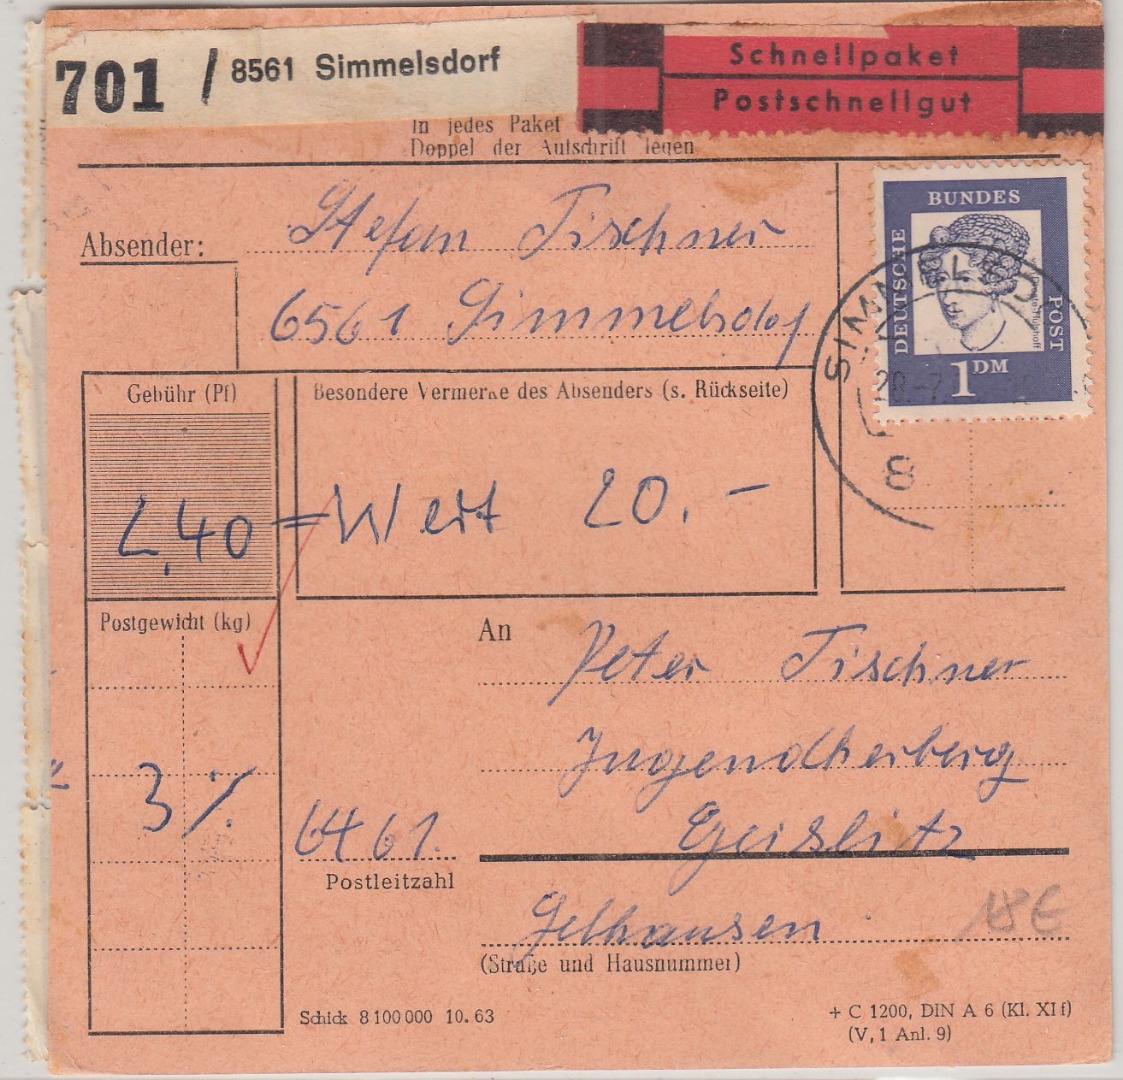 701 / 8561 Simmelsdorf
Schnellpaket
Postschnellgut
In jedes Paket
Doppel der Aufschrift legen
Absender:
Stefan Tischner
6561 Simmelsdof
BUNDES
DEUTSCHE
POST
1 DM
SIMMELSDO
20.-7.
8
Gebühr (Pf)
2,40 =
Besondere Vermerke des Absenders (s. Rückseite)
Wert 20.-
Postgewicht (kg)
3 %
An
Peter Tischner
Jugendherberg
6461. Geislitz
Postleitzahl
Gelhausen
18 €
(Straße und Hausnummer)
Schick 8 100 000 10. 63
+ C 1200, DIN A 6 (Kl. XI f)
(V, 1 Anl. 9)